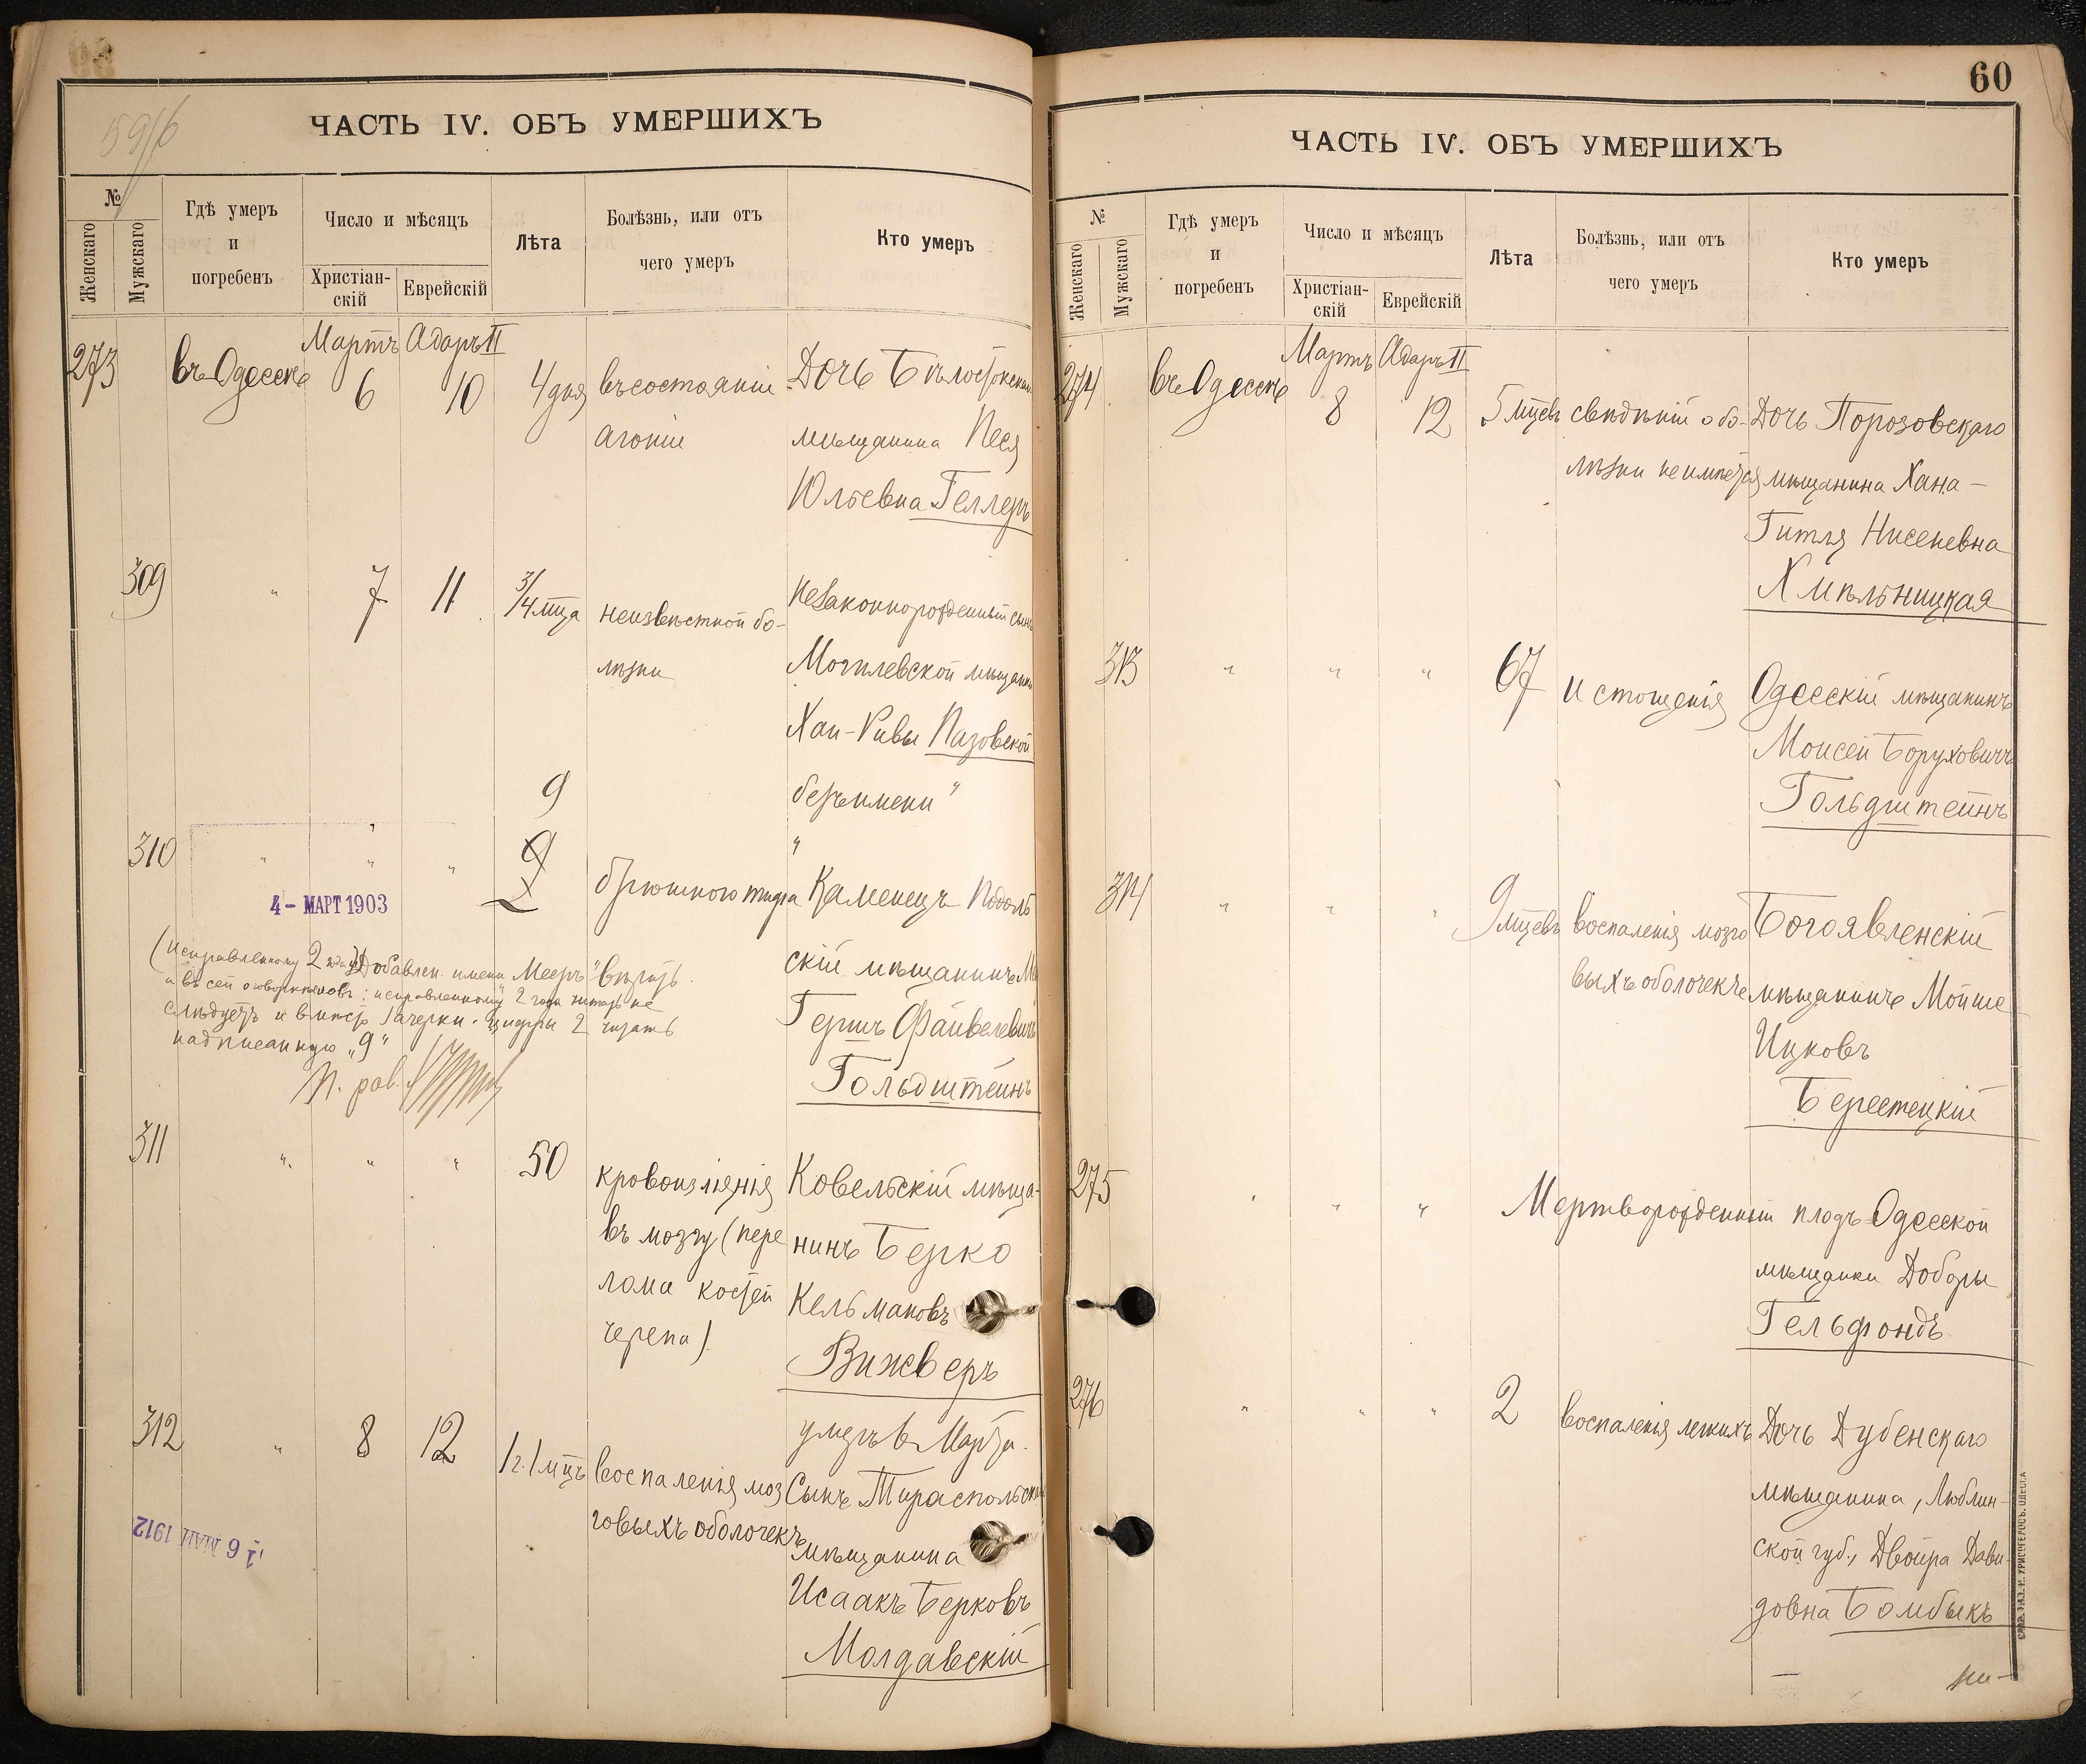 59/6
ЧАСТЬ IV. ОБЪ УМЕРШИХЪ
№
Женскаго
Мужскаго
Гдѣ умеръ
и
погребенъ
Число и мѣсяцъ
Христіан-
скій
Еврейскій
Лѣта
Болѣзнь, или отъ
чего умеръ
Кто умеръ
Мартъ Адаръ II
273 въ Одессѣ 6 10 4 дня въ состояніи Дочь Бѣлостокскаго
агоніи мѣщанина Песя
Юльевна Геллеръ
309 " 7 11 3/4 мца неизвѣстной бо- Незаконнорожденный сынъ
лѣзни Могилевской мѣщанки
Хаи-Ривы Пазовской
9 безъ имени "
310 " " " 9 2 брюшного тифа Каменецъ Подоль
4 - МАРТ 1903
скій мѣщанинъ
Гершъ Файвелевичъ
Гольдштейнъ
(Исправленному 2 года Добавлен. имени Мееръ" вѣрить.
и въ сей оговоркѣ словъ: исправленному 2 года читать не
слѣдуетъ и вмѣсто зачеркн. цифры 2 читать
надписанную „9"
П. рав.
311 " " " 50 кровоизліянія Ковельскій мѣща-
въ мозгу (пере нинъ Берко
лома костей Кельмановъ
черепа). Вижверъ
умеръ 6 Марта.
312 " 8 12 1 г. 1 мцъ воспаленія моз Сынъ Тираспольскаго
говыхъ оболочекъ мѣщанина
Исаакъ Берковъ
Молдавскій
16 МАЙ 1912
60
ЧАСТЬ IV. ОБЪ УМЕРШИХЪ
№
Женскаго
Мужскаго
Гдѣ умеръ
и
погребенъ
Число и мѣсяцъ
Христіан-
скій
Еврейскій
Лѣта
Болѣзнь, или отъ
чего умеръ
Кто умеръ
Мартъ Адаръ II
274 въ Одессѣ 8 12 5 мцевъ свѣдѣній о бо- Дочь Порозовскаго
лѣзни не имѣется мѣщанина Хана-
Гитля Нисеневна
Хмѣльницкая
313 " " " 67 истощенія Одесскій мѣщанинъ
Моисей Боруховичъ
Гольдштейнъ
314 " " " 9 мцевъ воспаленія мозго Богоявленскій
выхъ оболочекъ мѣщанинъ Мойше
Ицковъ
Берестецкій
275 " " " Мертворожденный плодъ Одесской
мѣщанки Добры
Гельфондъ
276 " " " 2 воспаленія легкихъ Дочь Дубенскаго
мѣщанина, Люблин-
ской губ., Двойра Дави-
довна Бомбыкъ